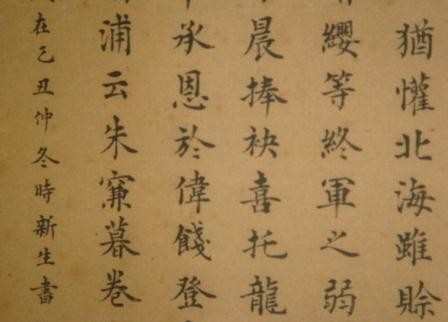 猶懽北海雖賒
纓等終軍之弱
晨捧袂喜托龍
承恩於偉餞登
浦云朱暮卷
在己丑仲冬時新生書